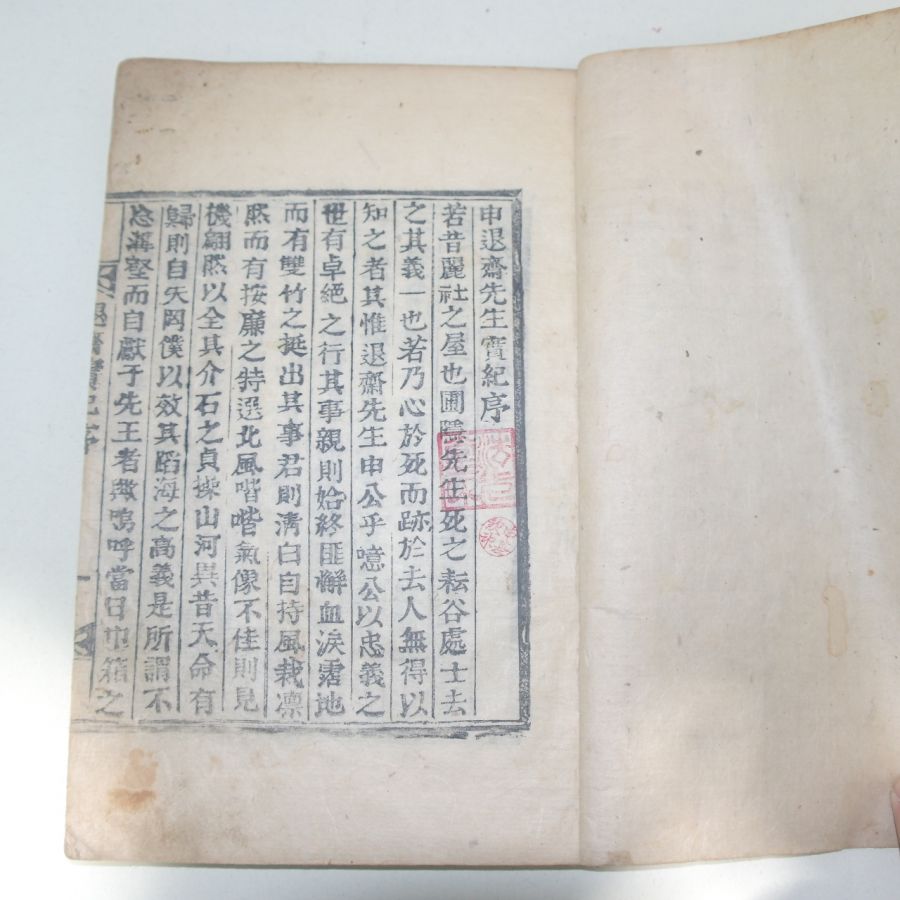 申退齋先生實紀序
若昔麗社之屋也圃隱先生死之耘谷處士去
之其義一也若乃心於死而跡於去人無得以
知之者其惟退齋先生申公乎噫公以忠義之
世有卓絕之行其事親則始終匪懈血淚霑地
而有雙竹之挺出其事君則淸白自持風裁凛
然而有按廉之特選北風喈喈氣像不佳則見
機翩然以全其介石之貞操山河異昔天命有
歸則自矢罔僕以效其蹈海之高義是所謂不
忘溝壑而自獻于先王者歟嗚呼當日巾箱之
退齋實紀序
一